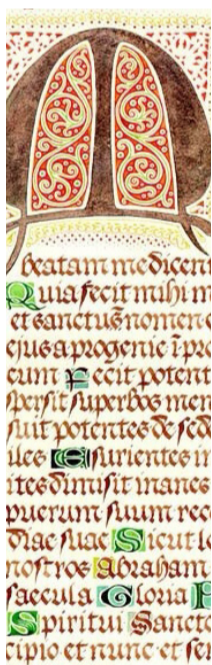 M
beatam me dicent
Quia fecit mihi m
et sanctus nomen e
ejus a progenie i pro
eum Fecit potent
spersit superbos men
suit potentes de sed
ites Esurientes in
ites dimisit inanes
puerum suum rece
diae suae Sicut lo
nostros Abraham
saecula Gloria P
Spiritui Sancto
cipio et nunc et sem